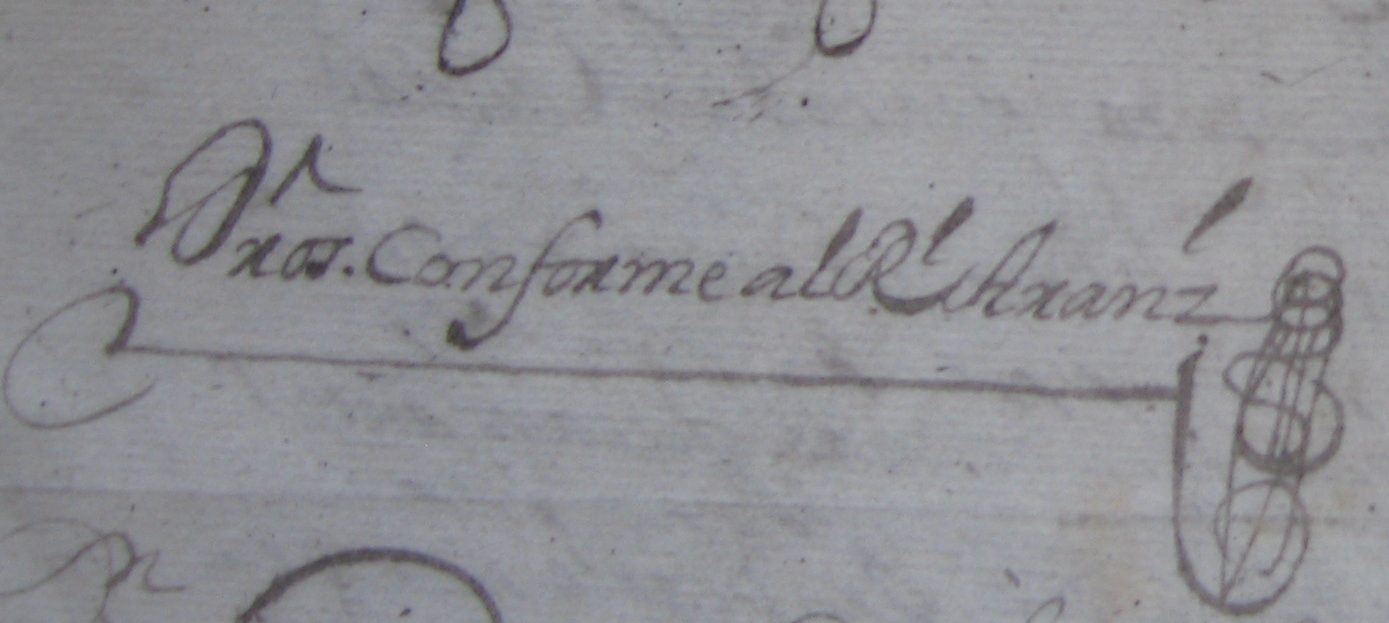 Drōs. Conforme al Rl Aranz